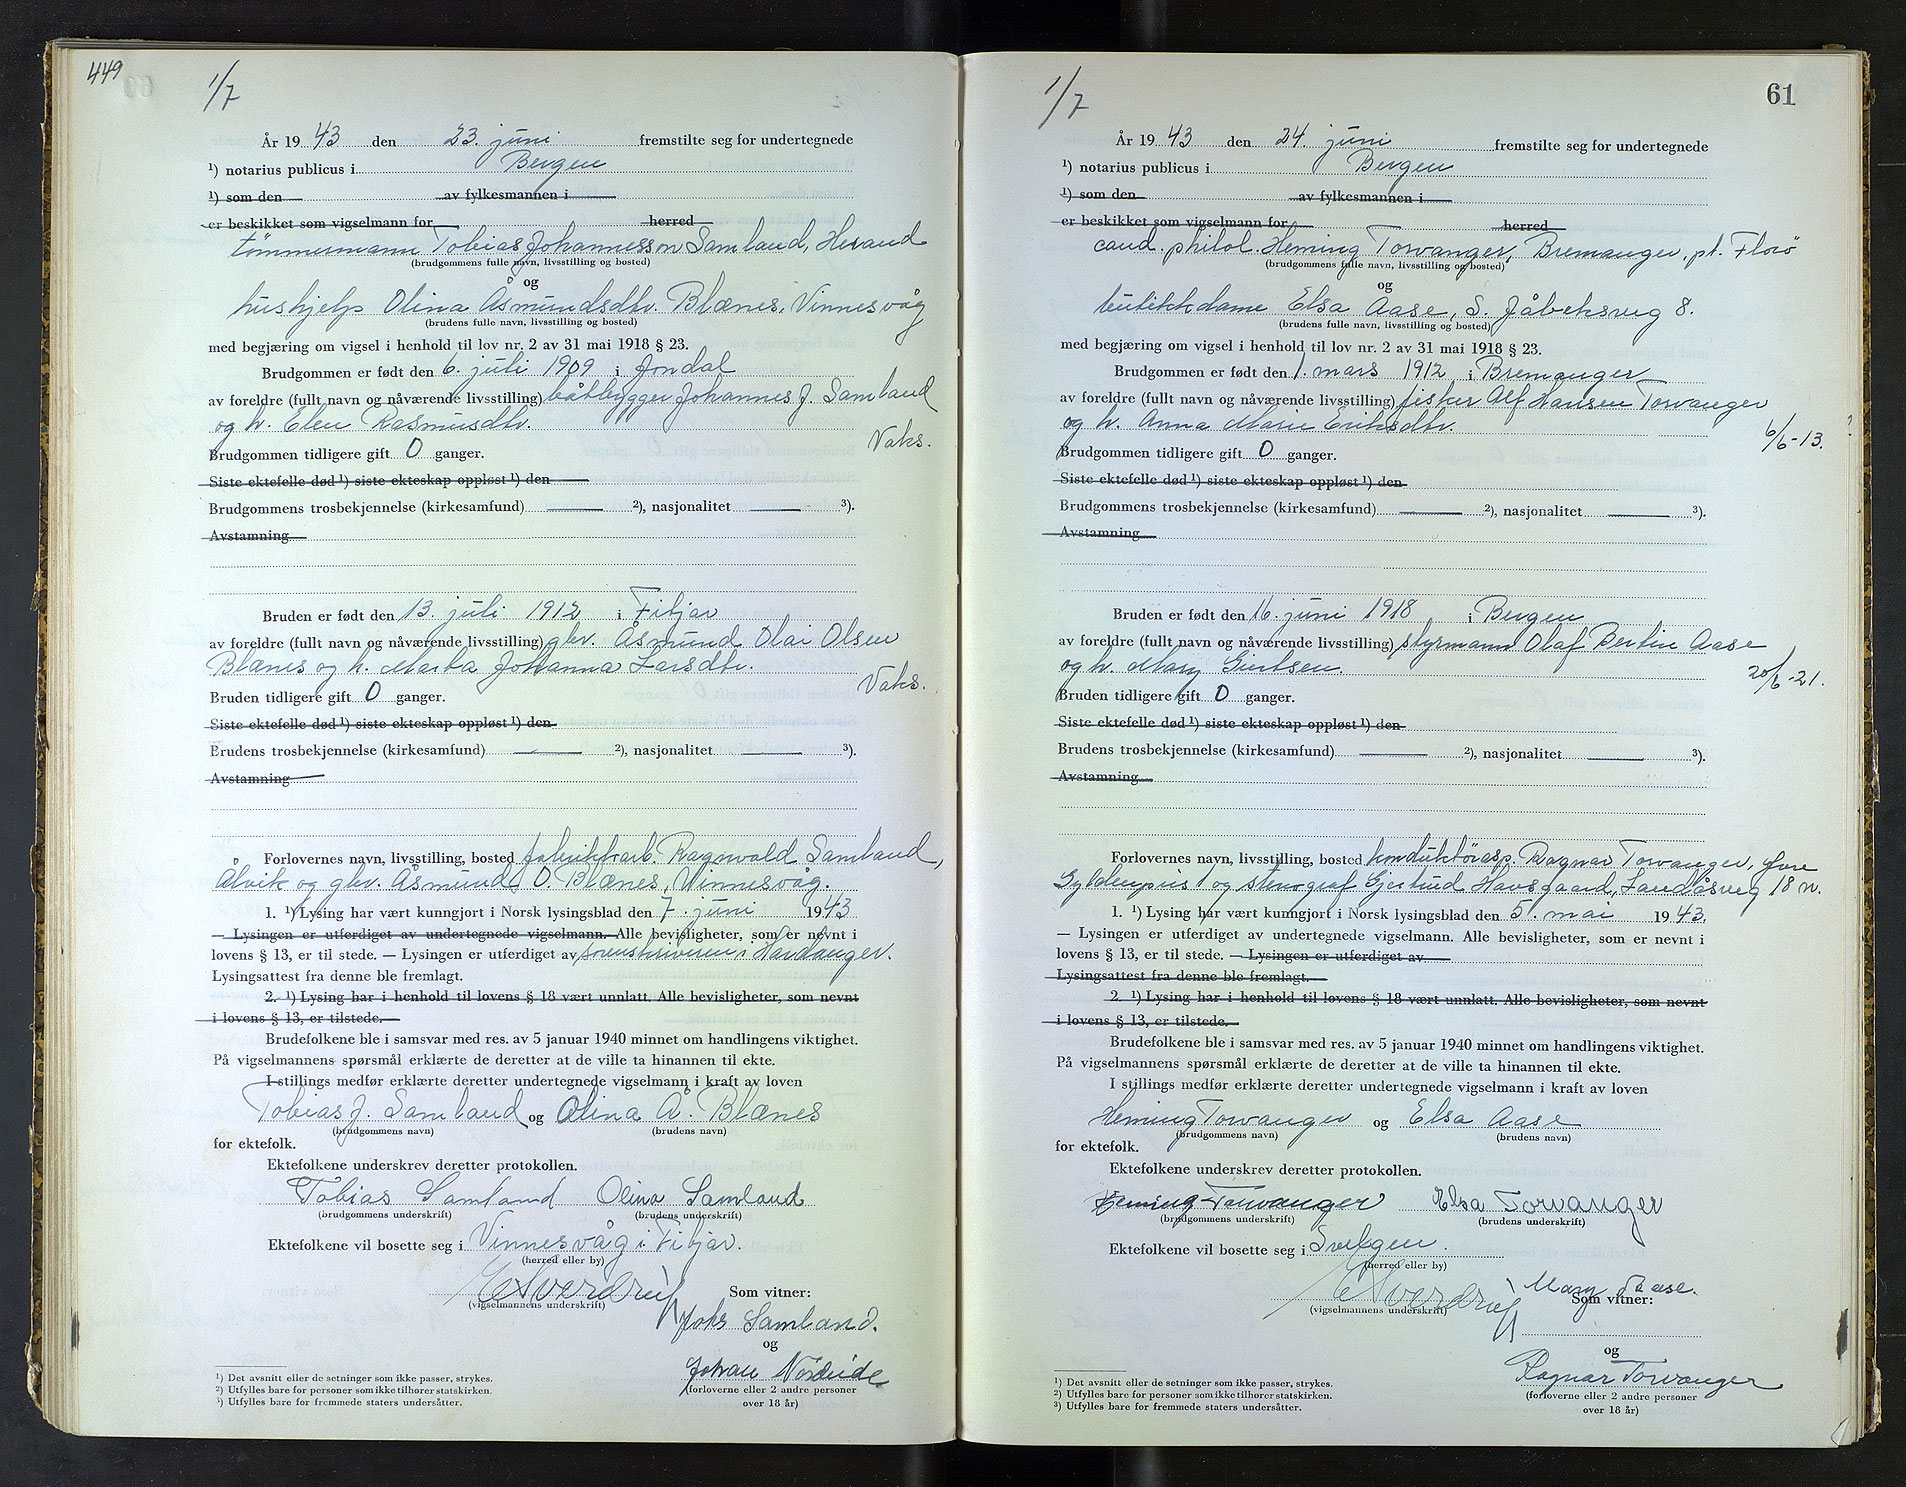 449
1/7
År 19 43 den 23. juni fremstilte seg for undertegnede
¹) notarius publicus i Bergen
¹) som den av fylkesmannen i
er beskikket som vigselmann for herred
tømmermann Tobias Johannesson Samland, Herand
(brudgommens fulle navn, livsstilling og bosted)
og
hushjelp Olina Åsmundsdtr. Blænes, Vinnesvåg
(brudens fulle navn, livsstilling og bosted)
med begjæring om vigsel i henhold til lov nr. 2 av 31 mai 1918 § 23.
Brudgommen er født den 6. juli 1909 i Jondal
av foreldre (fullt navn og nåværende livsstilling) båtbygger Johannes J. Samland
og h. Elen Rasmusdtr.
Vaks.
Brudgommen tidligere gift 0 ganger.
Siste ektefelle død ¹) siste ekteskap oppløst ¹) den
Brudgommens trosbekjennelse (kirkesamfund) ²), nasjonalitet ³).
Avstamning
Bruden er født den 13. juli 1912 i Fitjar
av foreldre (fullt navn og nåværende livsstilling) gbr. Åsmund Olai Olsen
Blænes og h. Marta Johanna Larsdtr.
Vaks.
Bruden tidligere gift 0 ganger.
Siste ektefelle død ¹) siste ekteskap oppløst ¹) den
Brudens trosbekjennelse (kirkesamfund) ²), nasjonalitet ³).
Avstamning
Forlovernes navn, livsstilling, bosted fabrikkarb. Ragnvald Samland,
Ålvik og gbr. Åsmund O. Blænes, Vinnesvåg.
1. ¹) Lysing har vært kunngjort i Norsk lysingsblad den 7. juni 1943
— Lysingen er utferdiget av undertegnede vigselmann. Alle bevisligheter, som er nevnt i
lovens § 13, er til stede. — Lysingen er utferdiget av sorenskriveren i Hardanger.
Lysingsattest fra denne ble fremlagt.
2. ¹) Lysing har i henhold til lovens § 18 vært unnlatt. Alle bevisligheter, som nevnt
i lovens § 13, er tilstede.
Brudefolkene ble i samsvar med res. av 5 januar 1940 minnet om handlingens viktighet.
På vigselmannens spørsmål erklærte de deretter at de ville ta hinannen til ekte.
I stillings medfør erklærte deretter undertegnede vigselmann i kraft av loven
Tobias J. Samland og Olina Å. Blænes
(brudgommens navn) (brudens navn)
for ektefolk.
Ektefolkene underskrev deretter protokollen.
Tobias Samland Olina Samland
(brudgommens underskrift) (brudens underskrift)
Ektefolkene vil bosette seg i Vinnesvåg i Fitjar.
(herred eller by)
Sverdrup Som vitner:
(vigselmannens underskrift)
Johs Samland.
og
Johan Nordeide
(forloverne eller 2 andre personer
over 18 år)
¹) Det avsnitt eller de setninger som ikke passer, strykes.
²) Utfylles bare for personer som ikke tilhører statskirken.
³) Utfylles bare for fremmede staters undersåtter.
1/7
61
År 19 43 den 24. juni fremstilte seg for undertegnede
¹) notarius publicus i Bergen
¹) som den av fylkesmannen i
er beskikket som vigselmann for herred
cand. philol. Heming Torvanger, Bremanger, pt. Florø
(brudgommens fulle navn, livsstilling og bosted)
og
butikkdame Elsa Aase, S. Jåbeksveg 8.
(brudens fulle navn, livsstilling og bosted)
med begjæring om vigsel i henhold til lov nr. 2 av 31 mai 1918 § 23.
Brudgommen er født den 1. mars 1912 i Bremanger
av foreldre (fullt navn og nåværende livsstilling) fisker Alf Hansen Torvanger
og h. Anna Marie Eriksdtr.
6/6-13.
Brudgommen tidligere gift 0 ganger.
Siste ektefelle død ¹) siste ekteskap oppløst ¹) den
Brudgommens trosbekjennelse (kirkesamfund) ²), nasjonalitet ³).
Avstamning
Bruden er født den 16. juni 1918 i Bergen
av foreldre (fullt navn og nåværende livsstilling) styrmann Olaf Bertin Aase
og h. Mary Giertsen.
20/6-21.
Bruden tidligere gift 0 ganger.
Siste ektefelle død ¹) siste ekteskap oppløst ¹) den
Brudens trosbekjennelse (kirkesamfund) ²), nasjonalitet ³).
Avstamning
Forlovernes navn, livsstilling, bosted konduktørasp. Ragnar Torvanger, Øvre
og stenograf Gjertrud Havsgaard, Landåsveg 18 n.
1. ¹) Lysing har vært kunngjort i Norsk lysingsblad den 5. mai 1943.
— Lysingen er utferdiget av undertegnede vigselmann. Alle bevisligheter, som er nevnt i
lovens § 13, er til stede. — Lysingen er utferdiget av
Lysingsattest fra denne ble fremlagt.
2. ¹) Lysing har i henhold til lovens § 18 vært unnlatt. Alle bevisligheter, som nevnt
i lovens § 13, er tilstede.
Brudefolkene ble i samsvar med res. av 5 januar 1940 minnet om handlingens viktighet.
På vigselmannens spørsmål erklærte de deretter at de ville ta hinannen til ekte.
I stillings medfør erklærte deretter undertegnede vigselmann i kraft av loven
Heming Torvanger og Elsa Aase
(brudgommens navn) (brudens navn)
for ektefolk.
Ektefolkene underskrev deretter protokollen.
Heming Torvanger Elsa Torvanger
(brudgommens underskrift) (brudens underskrift)
Ektefolkene vil bosette seg i Svelgen.
(herred eller by)
Sverdrup Mary Aase.
(vigselmannens underskrift) Som vitner:
og
Ragnar Torvanger
(forloverne eller 2 andre personer
over 18 år)
¹) Det avsnitt eller de setninger som ikke passer, strykes.
²) Utfylles bare for personer som ikke tilhører statskirken.
³) Utfylles bare for fremmede staters undersåtter.